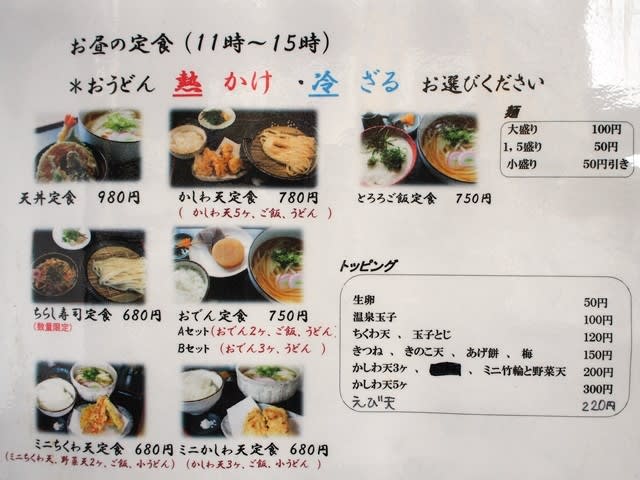 お昼の定食(11時～15時)
＊おうどん 熱 かけ ・冷 ざる お選びください
天丼定食 980円
かしわ天定食 780円
( かしわ天5ヶ、ご飯、うどん )
とろろご飯定食 750円
麺
大盛り 100円
1,5盛り 50円
小盛り 50円引き
ちらし寿司定食 680円
(数量限定)
おでん定食 750円
Aセット(おでん2ヶ、ご飯、うどん)
Bセット (おでん3ヶ、うどん )
トッピング
生卵 50円
温泉玉子 100円
ちくわ天 、玉子とじ 120円
きつね 、きのこ天 、あげ餅 、梅 150円
かしわ天3ヶ 、 、ミニ竹輪と野菜天 200円
かしわ天5ヶ 300円
えび天 220円
ミニちくわ天定食 680円
(ミニちくわ天、野菜天2ヶ、ご飯、小うどん)
ミニかしわ天定食 680円
(かしわ天3ヶ、ご飯、小うどん )